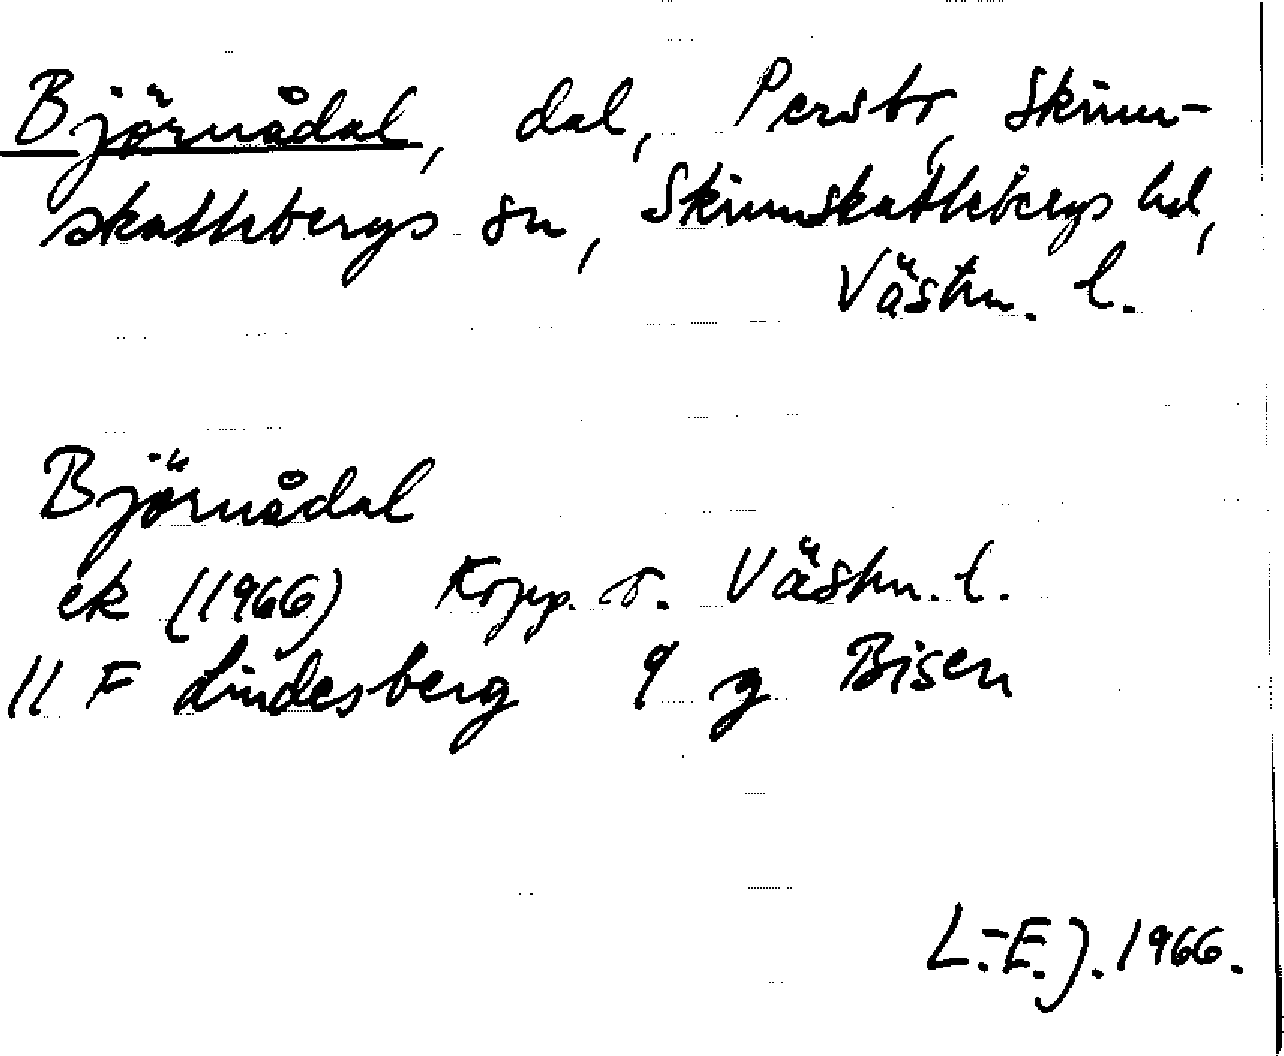 Björnådal, dal, Persbo, Skinn-
skattebergs sn, Skinnskattebergs hd,
Västm. l.
Björnådal
ek (1966) Kopp. o. Västm. l.
11 F Lindesberg 9 g Bisen
L.-E. J. 1966.